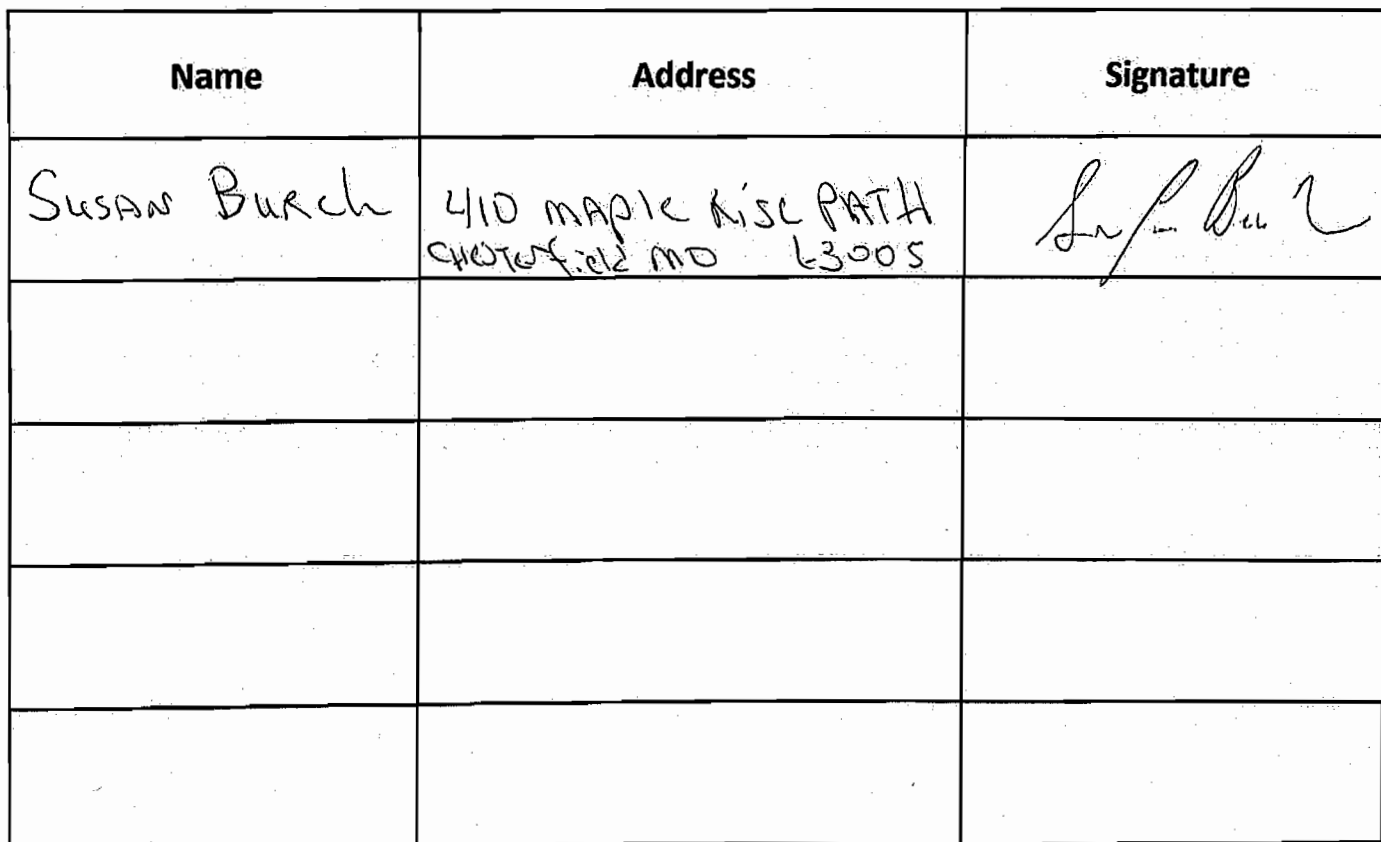 Name Address Signature
SUSAN BURCh 410 MAPlE RiSE PATH
CHESTERfiEld MO 63005